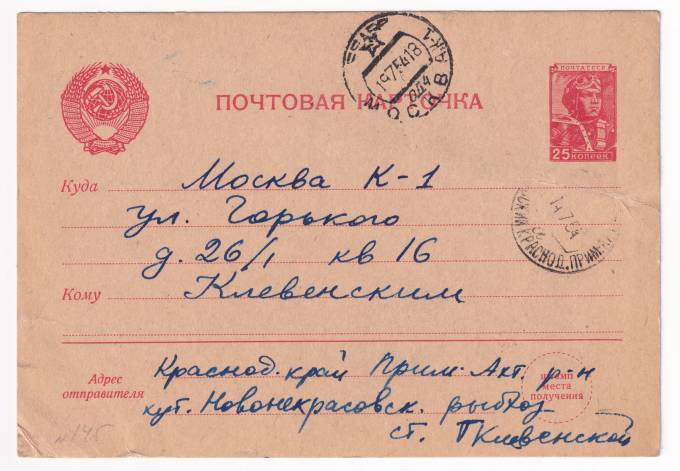 ПОЧТОВАЯ КАРТОЧКА
ПОЧТА СССР
25 КОПЕЕК
МОСКВА
19 7 54 18
Куда Москва К-1
ул. Горького
д. 26/1 кв 16
Кому Клевенским
14 7 54
КРАСНОД.
Адрес отправителя
Краснод. край Прим-Ахт. р-н
хут. Новонекрасовск. рыбхоз
ст. Клевенской
штамп
места
получения
№ 145